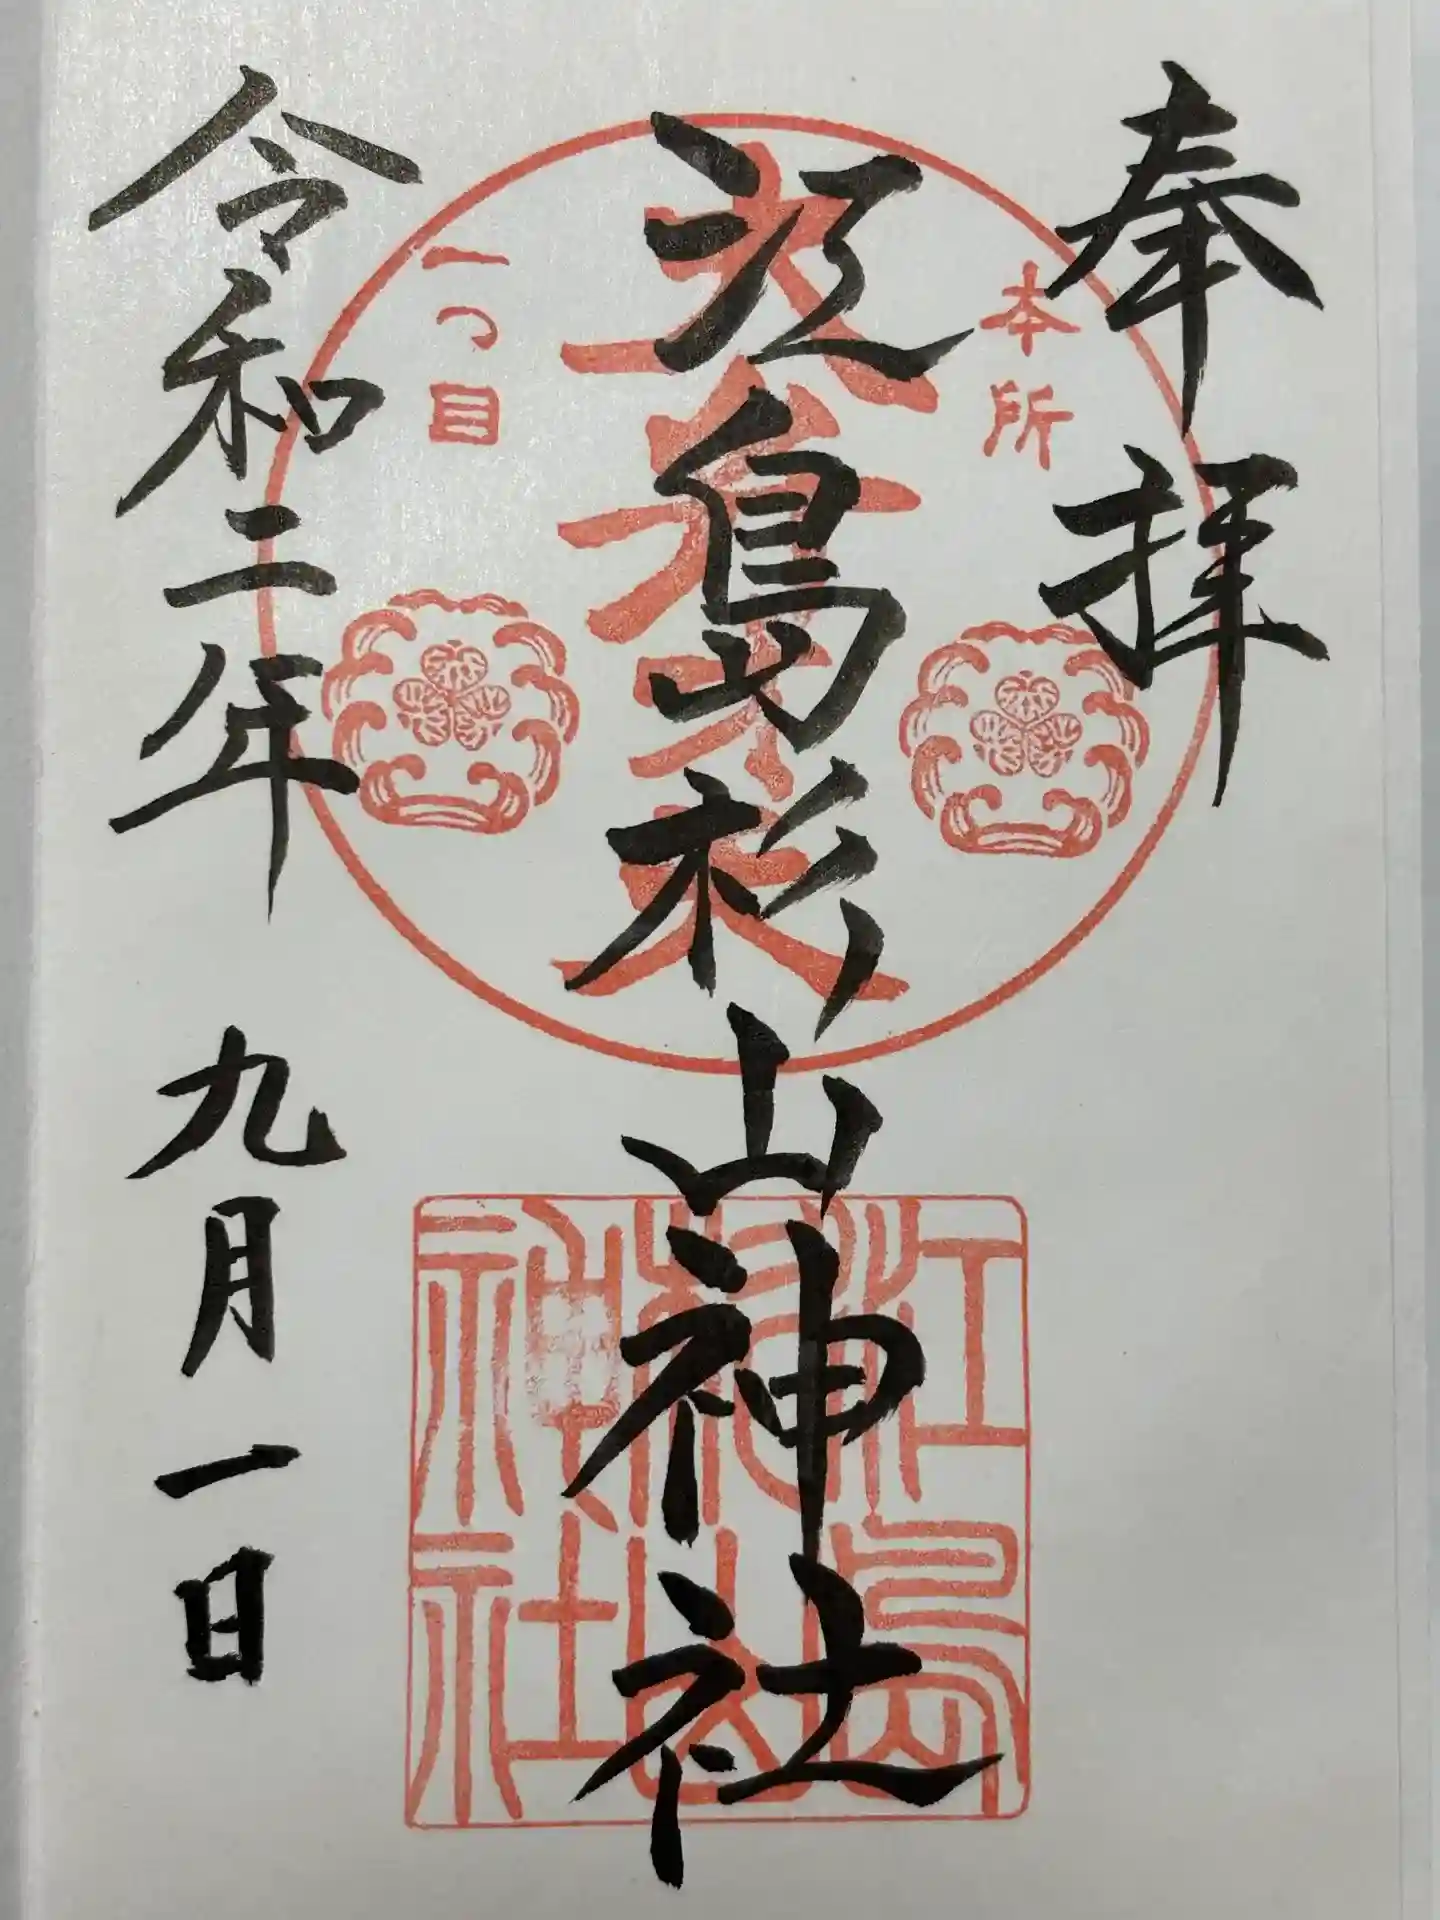 奉拝
本所
江島杉山神社
一つ目
江島
杉山
神社
令和二年 九月一日